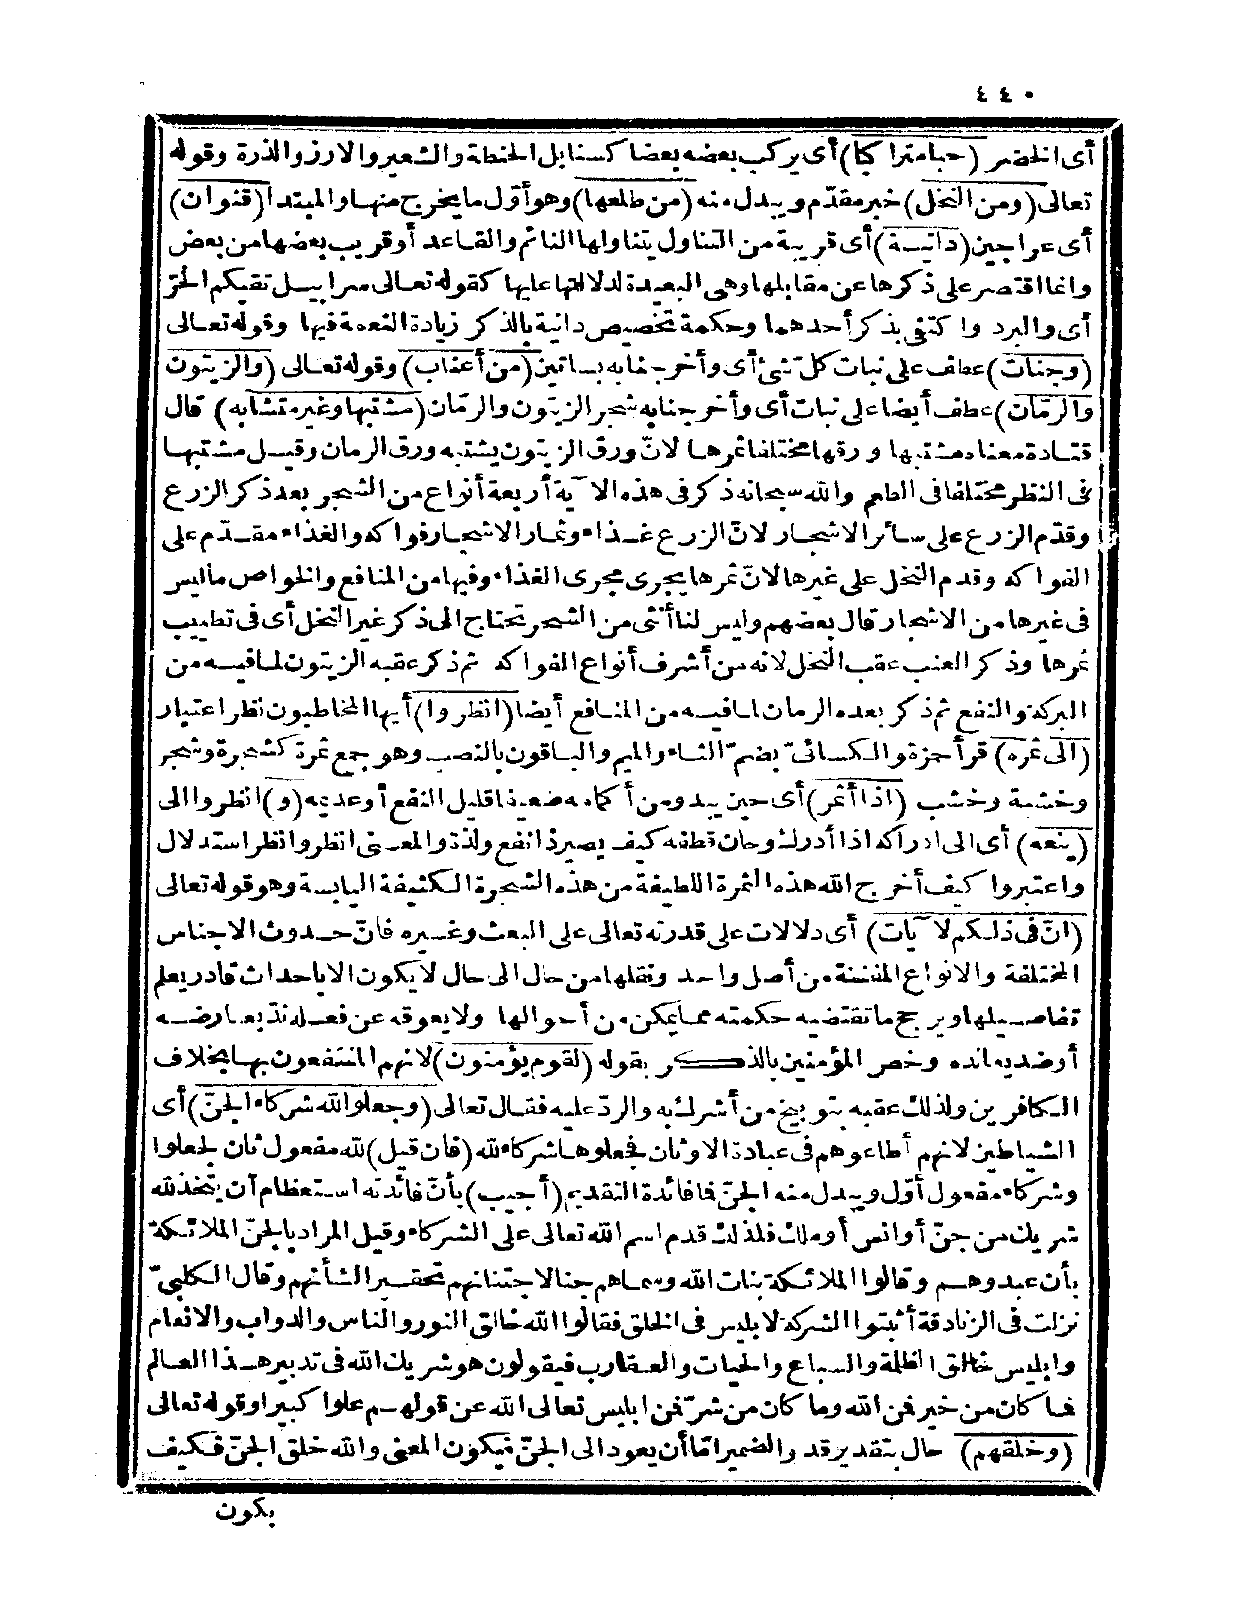 ٤٤٠
أى الخضر (حبا متراكبا) أى يركب بعضه بعضا كسنابل الحنطة والشعير والارز والذرة وقوله
تعالى (ومن النخل) خبر مقدّم ويبدل منه (من طلعها) وهو أوّل ما يخرج منها والمبتدا (قنوان)
أى عراجين (دانية) أى قريبة من التناول يتناولها النائم والقاعد أو قريب بعضها من بعض
وانما اقتصر على ذكرها عن مقابلها وهى البعيدة لدلالتها عليها كقوله تعالى سرابيل تقيكم الحرّ
أى والبرد واكتفى بذكر أحدهما وحكمة تخصيص دانية بالذكر زيادة النعمة فيها وقوله تعالى
(وجنات) عطف على نبات كلّ شئ أى وأخرجنا به بساتين (من أعناب) وقوله تعالى (والزيتون
والرمّان) عطف أيضا على نبات أى وأخرجنا به شجر الزيتون والرمّان (مشتبها وغير متشابه) قال
قتادة معناه مشتبها ورقها مختلفا ثمرها لانّ ورق الزيتون يشتبه ورق الرمان وقيل مشتبها
فى النظر مختلفا فى الطعم والله سبحانه ذكر فى هذه الآية أربعة أنواع من الشجر بعد ذكر الزرع
وقدّم الزرع على سائر الاشجار لانّ الزرع غذاء وثمار الاشجار فواكه والغذاء مقدّم على
الفواكه وقدم النخل على غيرها لانّ ثمرها يجرى مجرى الغذاء وفيها من المنافع والخواص ما ليس
فى غيرها من الاشجار قال بعضهم وليس لنا أنثى من الشجر تحتاج الى ذكر غير النخل أى فى تطييب
ثمرها وذكر العنب عقب النخل لانه من أشرف أنواع الفواكه ثم ذكر عقبه الزيتون لما فيه من
البركة والنفع ثم ذكر بعده الرمان لما فيه من المنافع أيضا (انظروا) أيها المخاطبون نظر اعتبار
(الى ثمره) قرأ حمزة والكسائىّ بضمّ الثاء والميم والباقون بالنصب وهو جمع ثمرة كشجرة وشجر
وخشبة وخشب (اذا أثمر) أى حين يبدو من أكمامه ضعيفا قليل النفع أو عديمه (و) انظروا الى
(ينعه) أى الى ادراكه اذا أدرك وحان قطفه كيف يصير ذا نفع ولذة والمعنى انظروا نظر استدلال
واعتبروا كيف أخرج الله هذه الثمرة اللطيفة من هذه الشجرة الكثيفة اليابسة وهو قوله تعالى
(انّ فى ذلكم لآيات) أى دلالات على قدرته تعالى على البعث وغيره فانّ حدوث الاجناس
المختلفة والانواع المفننة من أصل واحد ونقلها من حال الى حال لا يكون الا باحداث قادر يعلم
تفاصيلها ويرجح ما تقتضيه حكمته مما يمكن من أحوالها ولا يعوقه عن فعله ندّ يعارضه
أو ضد يعانده وخص المؤمنين بالذكر بقوله (لقوم يؤمنون) لانهم المنتفعون بها بخلاف
الكافرين ولذلك عقبه بتوبيخ من أشرك به والردّ عليه فقال تعالى (وجعلوا لله شركاء الجنّ) أى
الشياطين لانهم أطاعوهم فى عبادة الاوثان فجعلوها شركاء لله (فان قيل) لله مفعول ثان لجعلوا
وشركاء مفعول أوّل ويبدل منه الجنّ فما فائدة التقديم (أجيب) بأنّ فائدته استعظام أن يتخذ لله
شريك من جنّ أو انس أو ملك فلذلك قدم اسم الله تعالى على الشركاء وقيل المراد بالجنّ الملائكة
بأن عبدوهم وقالوا الملائكة بنات الله وسماهم جنا لاجتنانهم تحقيرا لشأنهم وقال الكلبىّ
نزلت فى الزنادقة أثبتوا الشركة لابليس فى الخلق فقالوا الله خالق النور والناس والدواب والانعام
وابليس خالق الظلمة والسباع والحيات والعقارب فيقولون هو شريك الله فى تدبير هذا العالم
فما كان من خير فمن الله وما كان من شرّ فمن ابليس تعالى الله عن قولهم علوا كبيرا وقوله تعالى
(وخلقهم) حال بتقدير قد والضمير امّا أن يعود الى الجنّ فيكون المعنى والله خلق الجنّ فكيف
يكون